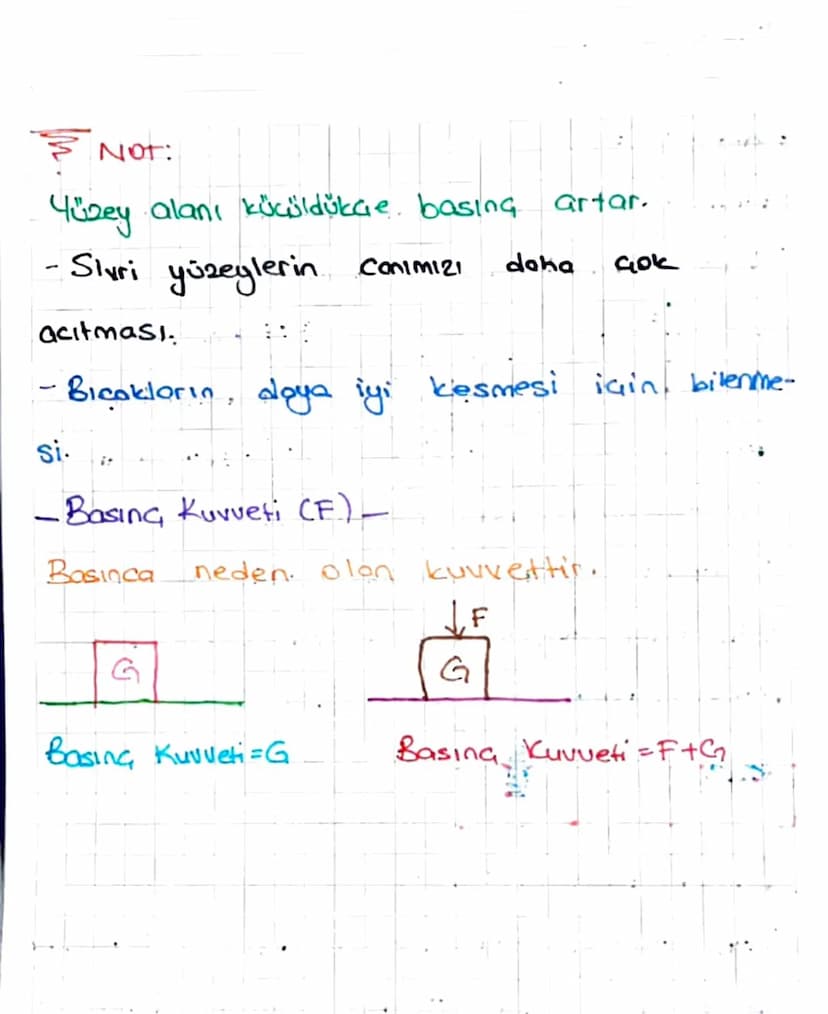 NOT:
Yüzey alanı küçüldükçe basınç artar.
- Sivri yüzeylerin canımızı daha çok
acıtması.
- Bıçakların, daya iyi kesmesi için bilenme-
si.
- Basınç Kuvveti (F) -
Basınca neden olan kuvvettir.
F
G
G
Basınç Kuvveti = G
Basınç Kuvveti = F+G